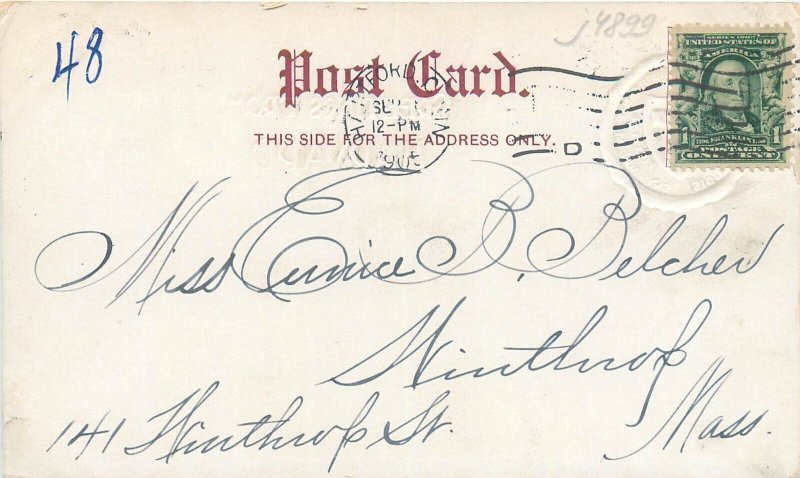 48
j4899
Post Card.
THIS SIDE FOR THE ADDRESS ONLY.
HARTFORD, CONN.
12-PM
1905
D
SERIES 1902
UNITED STATES OF
AMERICA
1 FRANKLIN 1
POSTAGE
ONE CENT
Miss Eunice B. Belcher
Winthrop
141 Winthrop St. Mass.